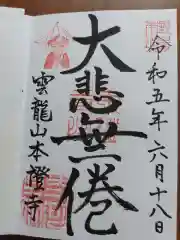 令和五年六月十八日
大悲無倦
雲龍山本證寺